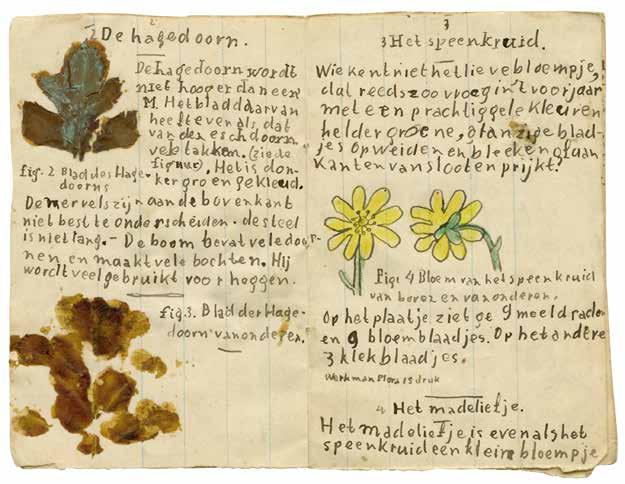 2
2 De hagedoorn.
De hagedoorn wordt
niet hooger dan een
M. Het blad daarvan
heeft evenals dat
van den eschdoorn
vele takken. (zie de
figuur). Het is don-
ker groen gekleurd.
fig. 2 Blad des Hage-
doorns
De nervels zijn aan de bovenkant
niet best te onderscheiden. de steel
is niet lang. - De boom bevat vele door-
nen en maakt vele bochten. Hij
wordt veel gebruikt voor heggen.
fig. 3. Blad der Hage-
doorn van onderen.
3
3 Het speenkruid.
Wie kent niet het lieve bloempje,
dat reeds zoo vroeg in 't voorjaar
met een prachtig gele kleur en
heldergroene, glanzige blad-
jes op weiden en bleeken of aan
kanten van slooten prijkt?
Fig. 4 Bloem van het speenkruid
van boven en van onderen.
Op het plaatje ziet ge 9 meeldraden
en 9 bloemblaadjes. Op het andere
3 klekblaadjes.
Werkman Flora is druk
4 Het madeliefje.
Het madeliefje is evenals het
speenkruid een klein bloempje